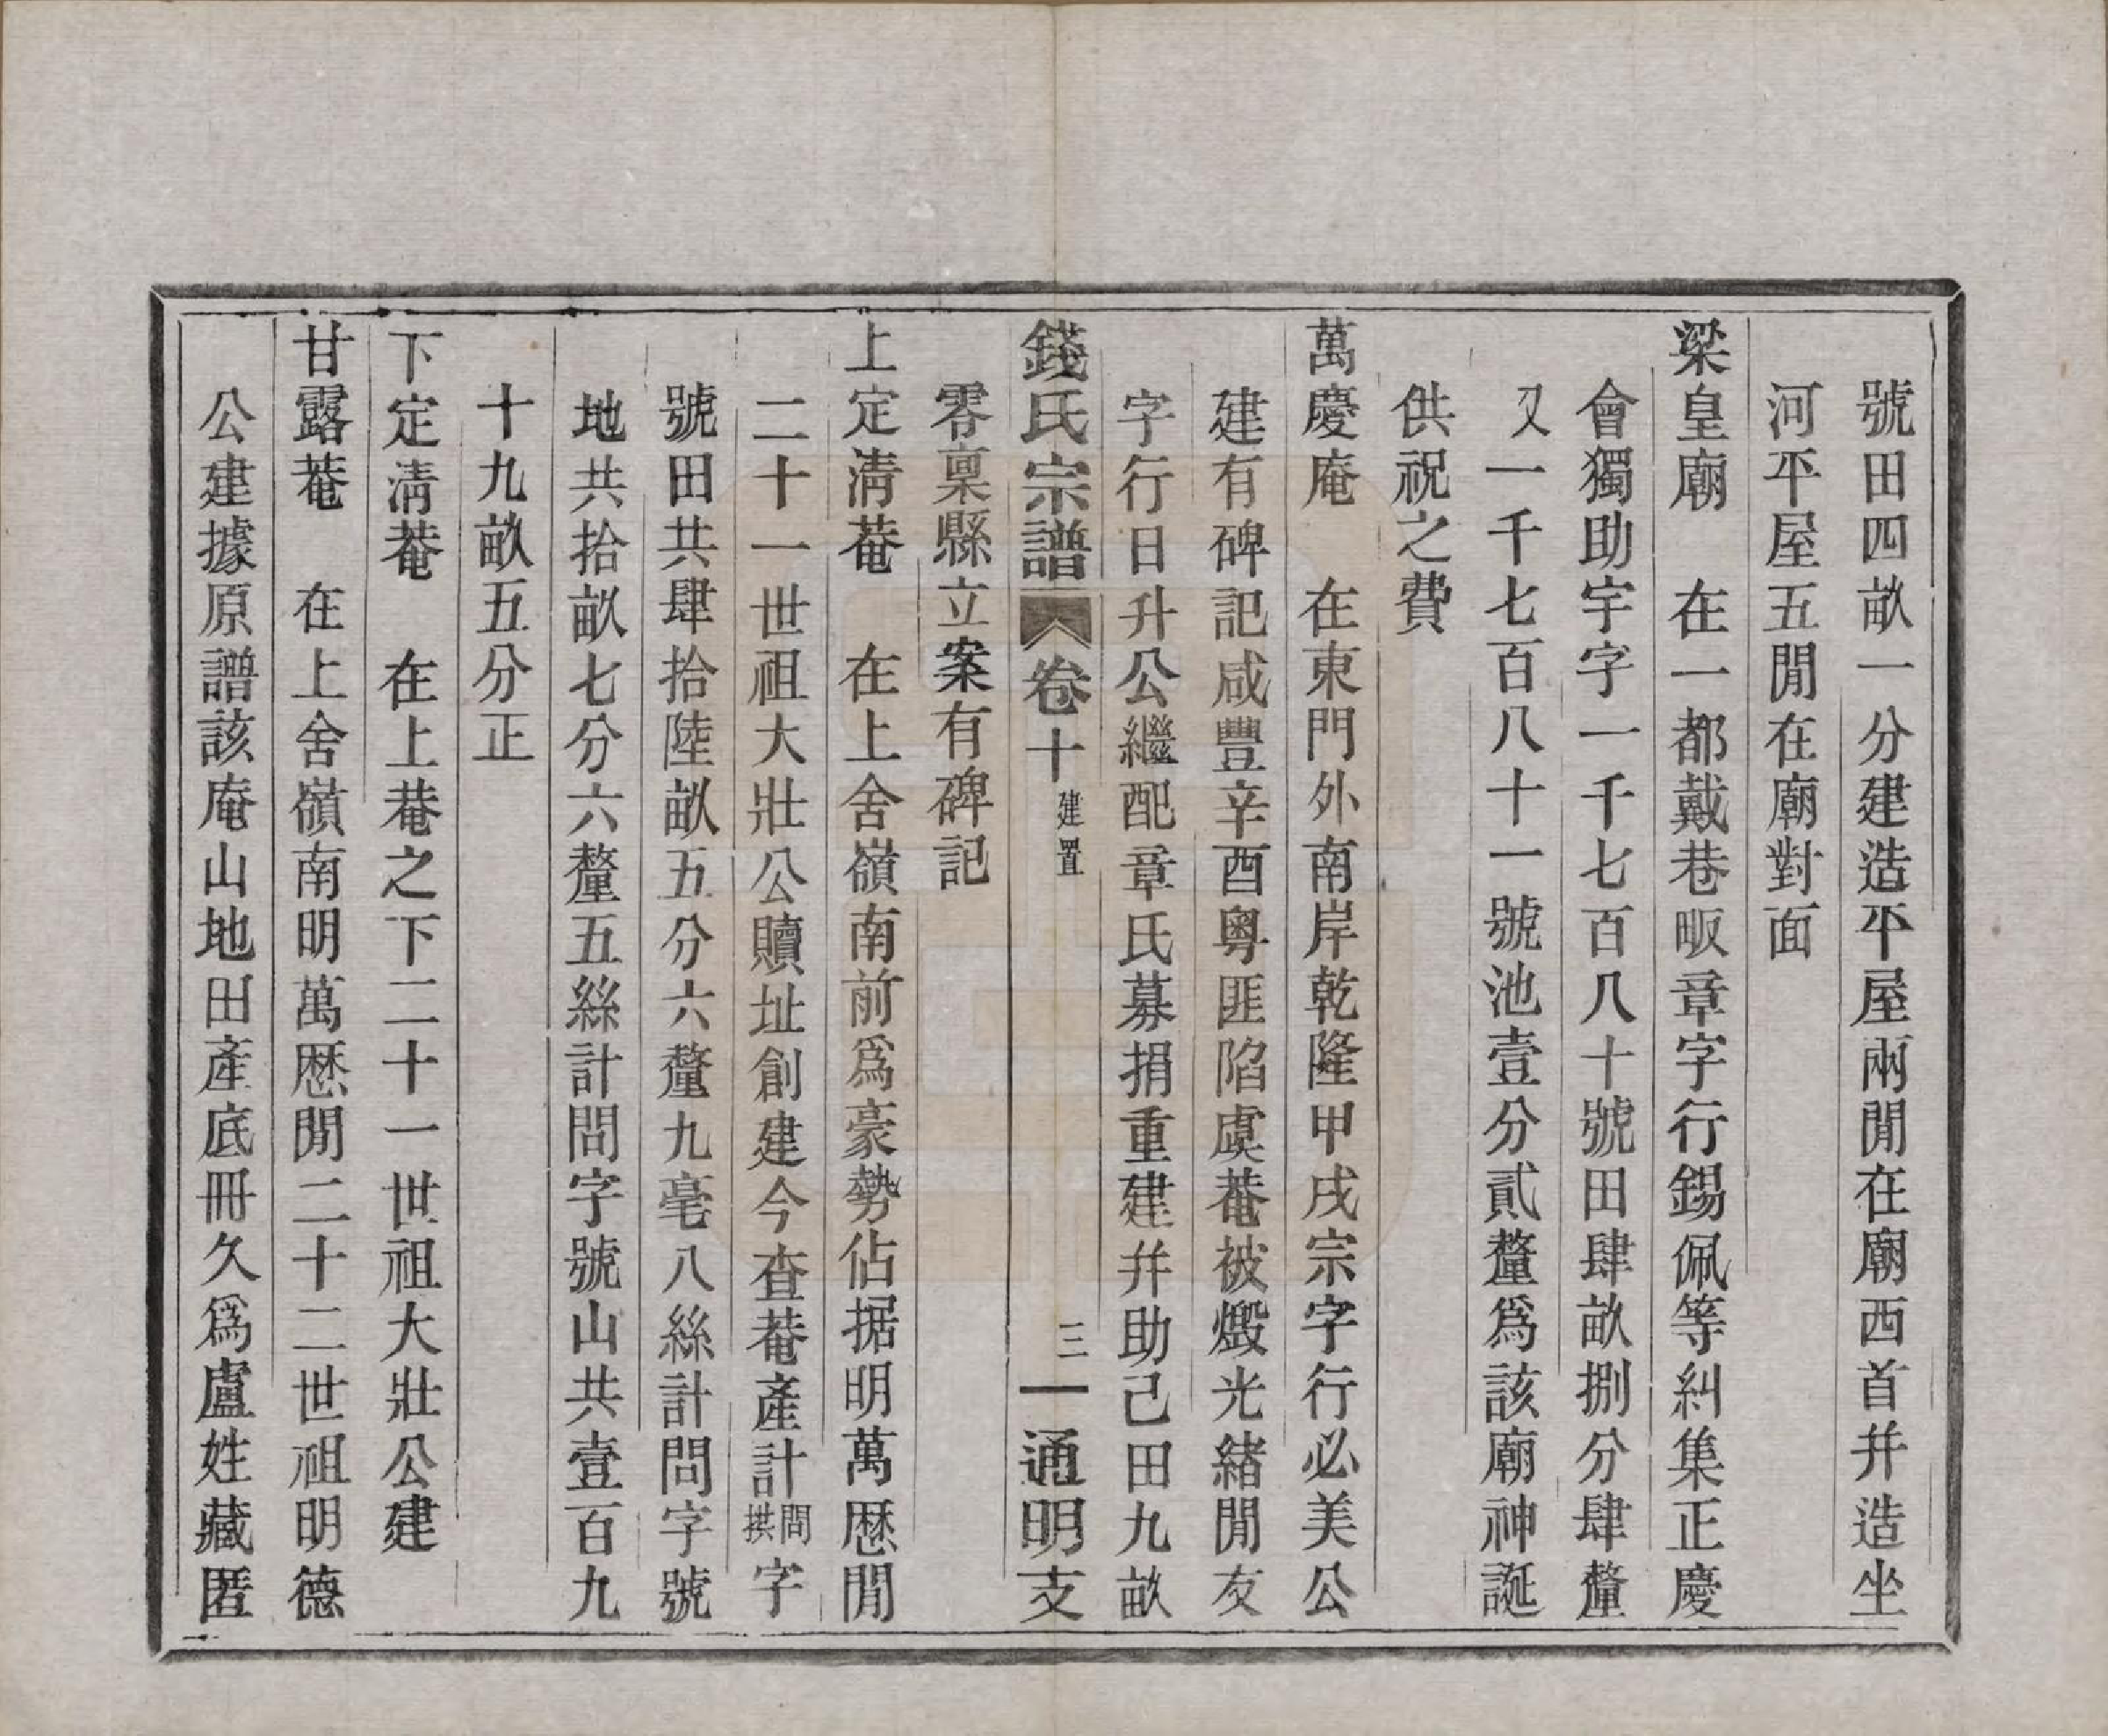 號田四畝一分建造平屋兩閒在廟西首并造坐
河平屋五閒在廟對面
梁皇廟　在一都戴巷畈章字行錫佩等糾集正慶
會獨助宇字一千七百八十號田肆畝捌分肆釐
又一千七百八十一號池壹分貳釐爲該廟神誕
供祝之費
萬慶庵　在東門外南岸乾隆甲戌宗字行必美公
建有碑記咸豐辛酉粵匪陷虞菴被燬光緒閒友
字行日升公繼配章氏募捐重建并助己田九畝
錢氏宗譜　卷十　建置　三　通明支
零稟縣立案有碑記
上定淸菴　在上舍嶺南前爲豪勢佔据明萬厯閒
二十一世祖大壯公贖址創建今查菴產計問拱字
號田共肆拾陸畝五分六釐九毫八絲計問字號
地共拾畝七分六釐五絲計問字號山共壹百九
十九畝五分正
下定淸菴　在上巷之下二十一世祖大壯公建
甘露菴　在上舍嶺南明萬厯閒二十二世祖明德
公建據原譜該庵山地田產底冊久爲盧姓藏匿